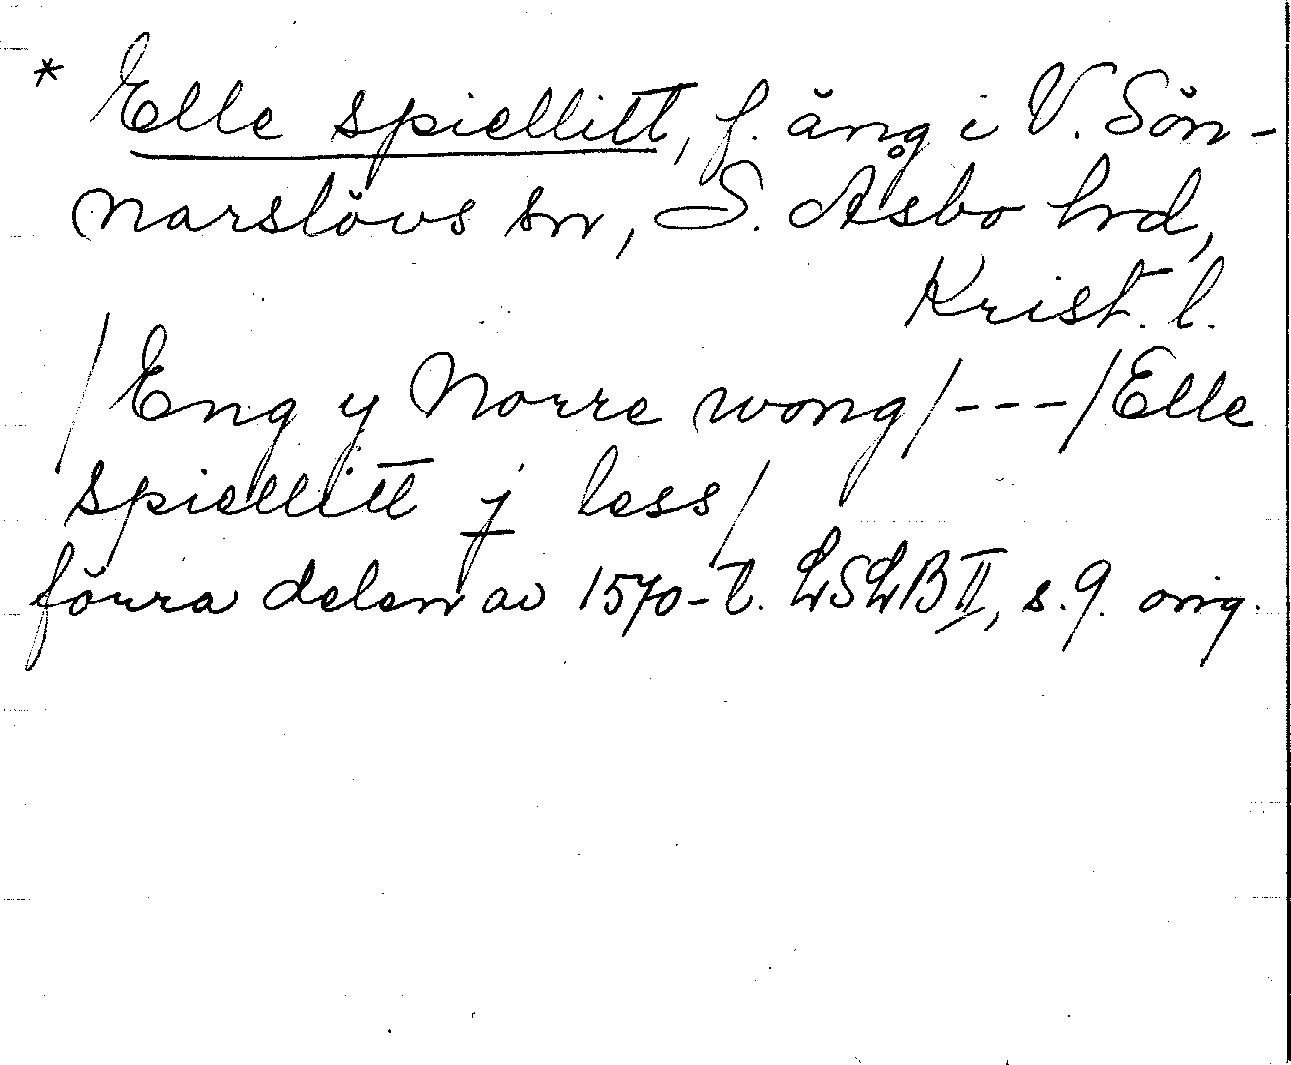 * Elle spiellitt, f. äng i V. Sön-
narslövs sn, S. Åsbo hrd,
Krist. l.
/Eng y Norre wong/---/Elle
spiellitt j less/
förra delen av 1570-t. LSLB II, s. 9. orig.